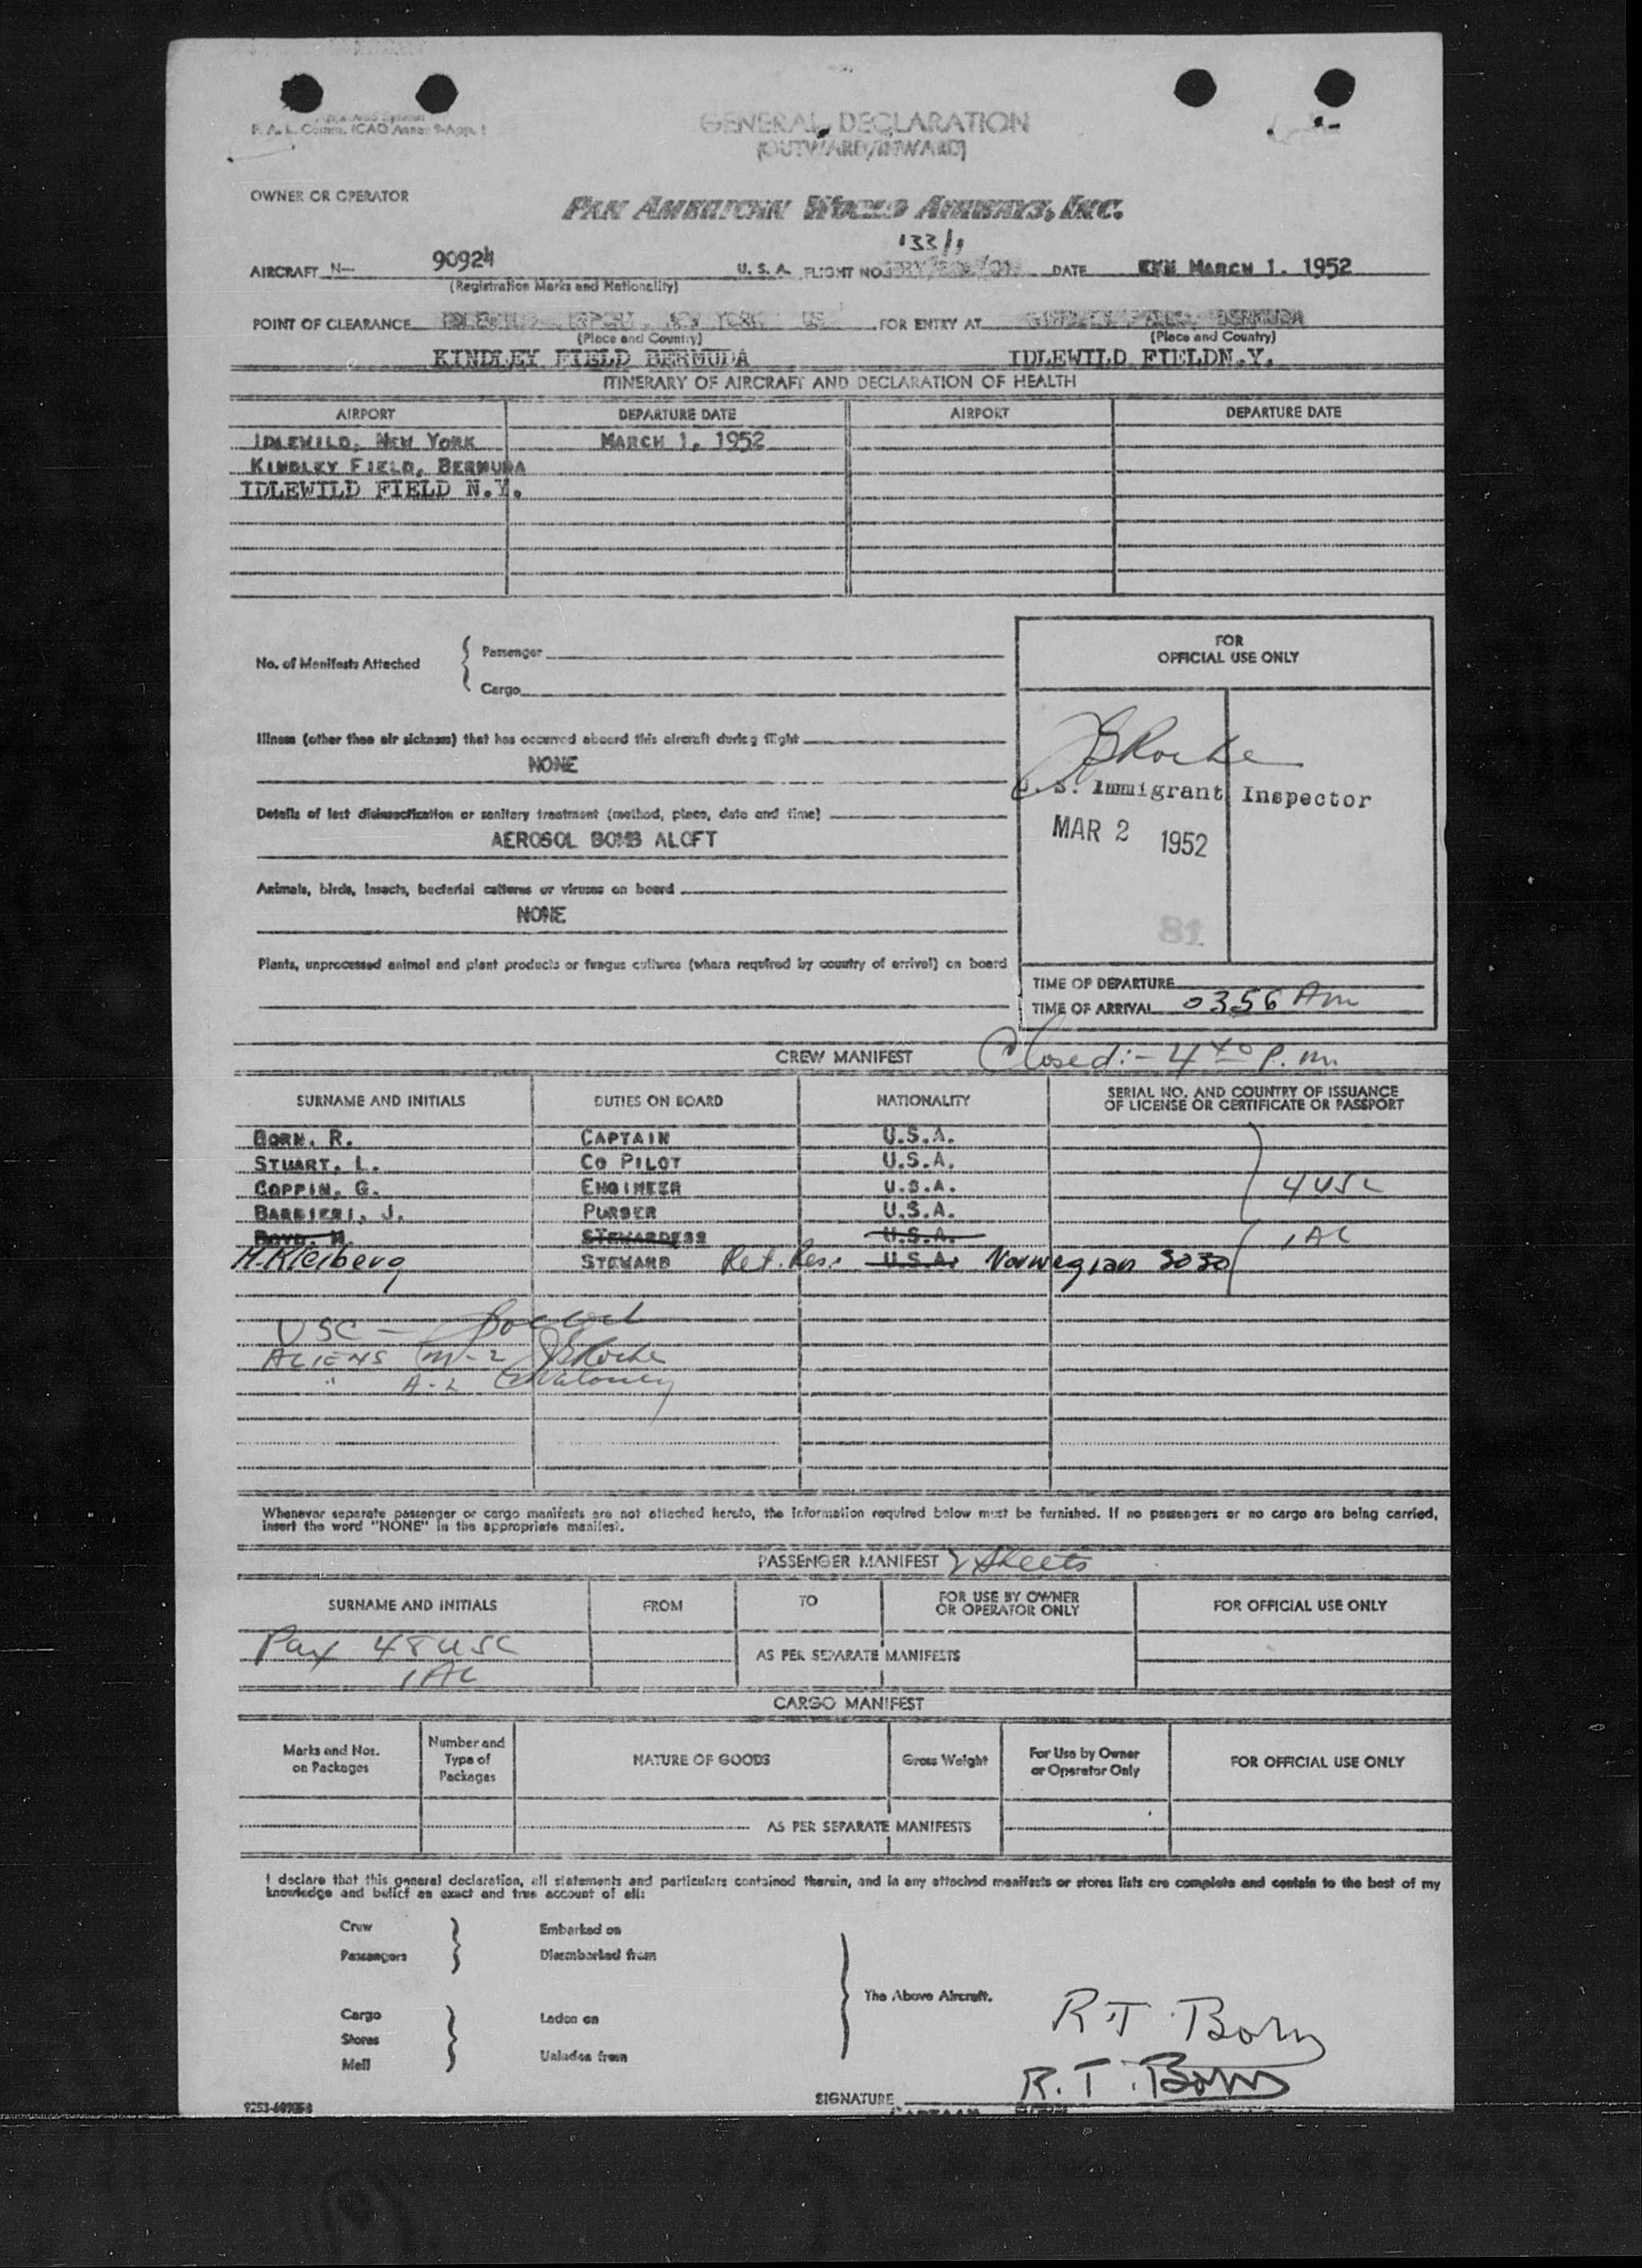 P. A. L. Comm. ICAO Annex 9-App. 1
GENERAL DECLARATION
(OUTWARD/INWARD)
OWNER OR OPERATOR
PAN AMERICAN WORLD AIRWAYS, INC.
133/1
AIRCRAFT N- 90924 U. S. A. FLIGHT NO. DATE MARCH 1. 1952
(Registration Marks and Nationality)
POINT OF CLEARANCE FOR ENTRY AT
(Place and Country) (Place and Country)
KINDLEY FIELD BERMUDA IDLEWILD FIELDN.Y.
ITINERARY OF AIRCRAFT AND DECLARATION OF HEALTH
AIRPORT DEPARTURE DATE AIRPORT DEPARTURE DATE
IDLEWILD, NEW YORK MARCH 1, 1952
KINDLEY FIELD, BERMUDA
IDLEWILD FIELD N.Y.
No. of Manifests Attached { Passenger
Cargo
FOR
OFFICIAL USE ONLY
Illness (other than air sickness) that has occurred aboard this aircraft during flight
NONE
Details of last disinsectification or sanitary treatment (method, place, date and time)
AEROSOL BOMB ALOFT
Animals, birds, insects, bacterial cultures or viruses on board
NONE
Plants, unprocessed animal and plant products or fungus cultures (where required by country of arrival) on board
JBRocke
U. S. Immigrant Inspector
MAR 2 1952
81
TIME OF DEPARTURE
TIME OF ARRIVAL 0356 Am
CREW MANIFEST Closed:- 4 40 P. m.
SURNAME AND INITIALS DUTIES ON BOARD NATIONALITY SERIAL NO. AND COUNTRY OF ISSUANCE
OF LICENSE OR CERTIFICATE OR PASSPORT
BORN, R. CAPTAIN U.S.A.
STUART, L. CO PILOT U.S.A.
COPPIN, G. ENGINEER U.S.A. 4 USC
BARBIERI, J. PURSER U.S.A.
BOYD. H. STEWARDESS U.S.A. 1 AC
M. Kleiberg STEWARD Ret. Res: U.S.A. Norwegian 3030
USC -
ALIENS M-2 JBRocke
" A-2 Maloney
Whenever separate passenger or cargo manifests are not attached hereto, the information required below must be furnished. If no passengers or no cargo are being carried,
insert the word "NONE" in the appropriate manifest.
PASSENGER MANIFEST 2 Sheets
SURNAME AND INITIALS FROM TO FOR USE BY OWNER
OR OPERATOR ONLY FOR OFFICIAL USE ONLY
Pax 48 USC
AS PER SEPARATE MANIFESTS
1 AC
CARGO MANIFEST
Marks and Nos.
on Packages Number and
Type of
Packages NATURE OF GOODS Gross Weight For Use by Owner
or Operator Only FOR OFFICIAL USE ONLY
AS PER SEPARATE MANIFESTS
I declare that this general declaration, all statements and particulars contained therein, and in any attached manifests or stores lists are complete and contain to the best of my
knowledge and belief an exact and true account of all:
Crew Embarked on
Passengers Disembarked from
The Above Aircraft.
Cargo Laden on
Stores
Mail Unladen from
R T Born
R. T. Born
SIGNATURE